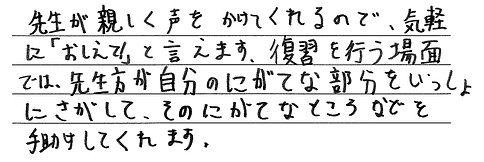 先生が親しく声をかけてくれるので、気軽
に「おしえて」と言えます、復習を行う場面
では、先生方が自分のにがてな部分をいっしょ
にさがして、そのにがてなところなでを
手助けしてくれます。